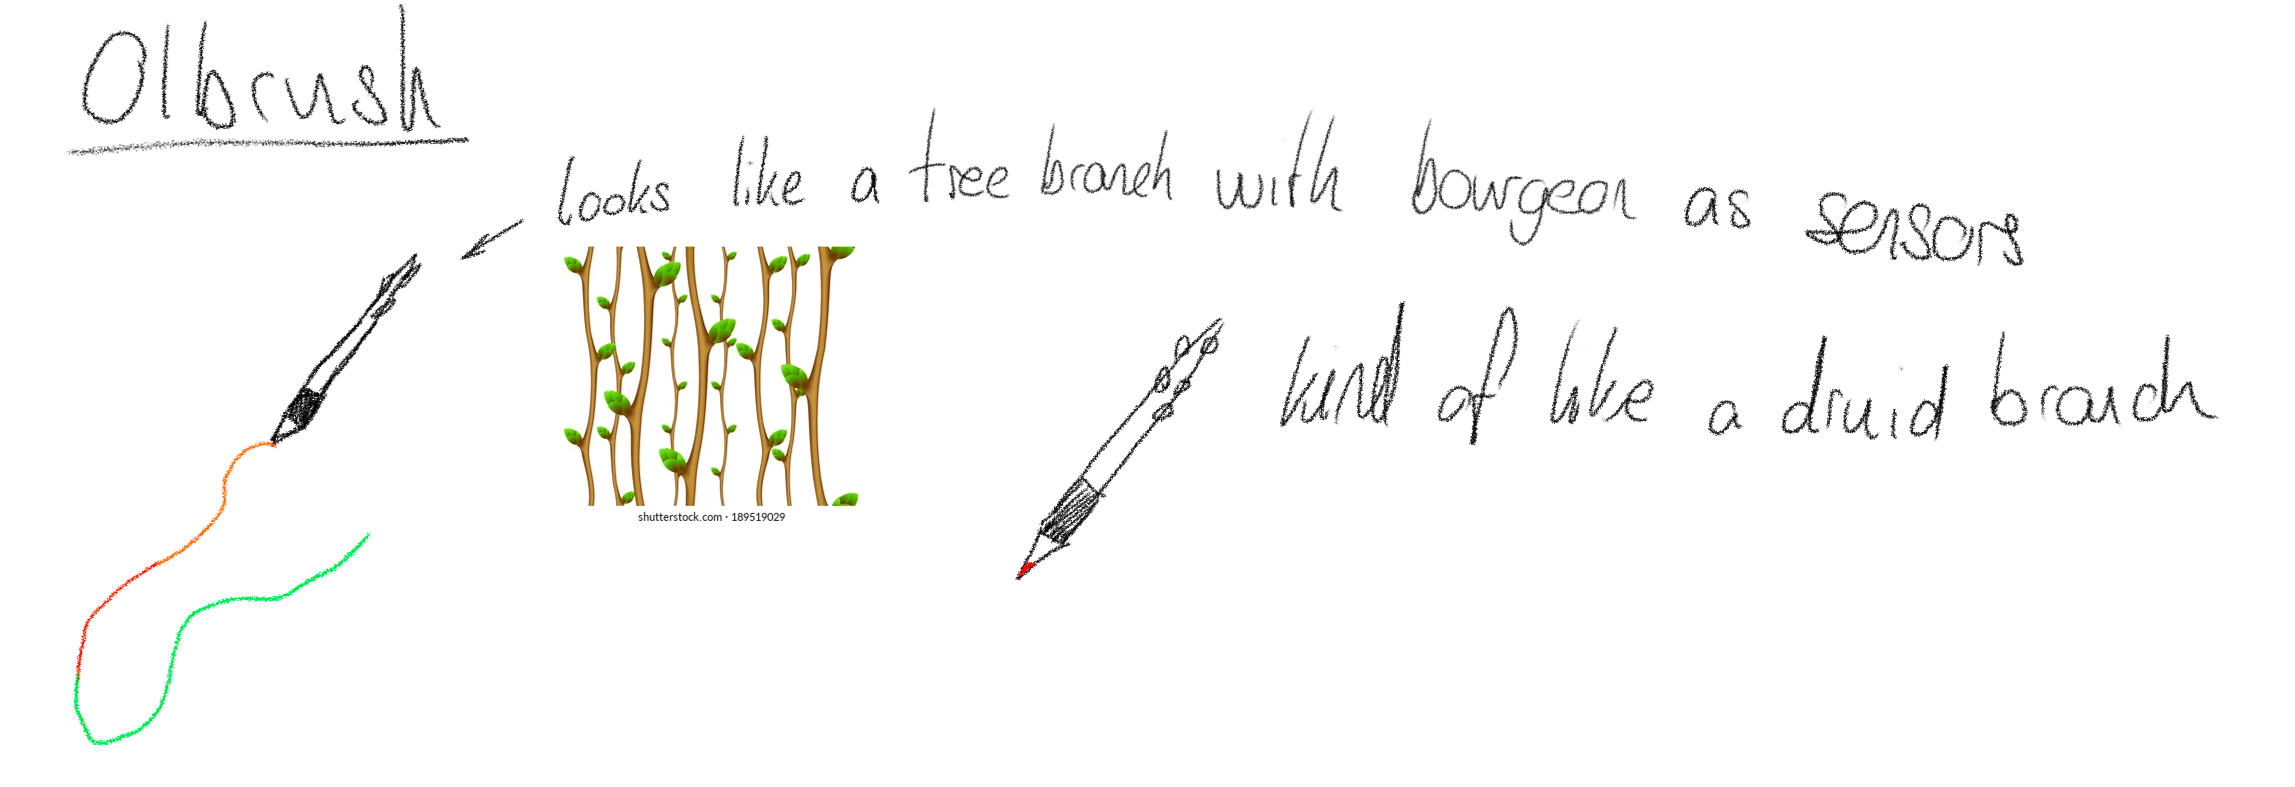 Olbrush
looks like a tree branch with bourgeon as sensors
shutterstock.com · 189519029
kind of like a druid branch